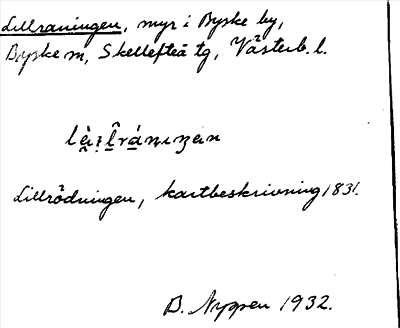 Lillraningen, myr i Byske by,
Byske m, Skellefteå tg, Västerb. l.
Lillrödningen, kartbeskrivning 1831.
B. 1932.